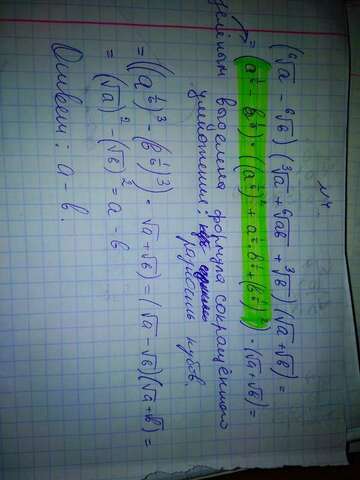 №4.
(⁶√a - ⁶√b)(³√a + ⁶√ab + ³√b)(√a + √b) =
= (a^{1/6} - b^{1/6}) · ((a^{1/6})² + a^{1/6} · b^{1/6} + (b^{1/6})²) · (√a + √b) =
зелёным выделена формула сокращённого
умножения: разность кубов.
= ((a^{1/6})³ - (b^{1/6})³) · √a + √b) = (√a - √b)(√a + √b) =
= (√a)² - (√b)² = a - b
Ответ: a - b.